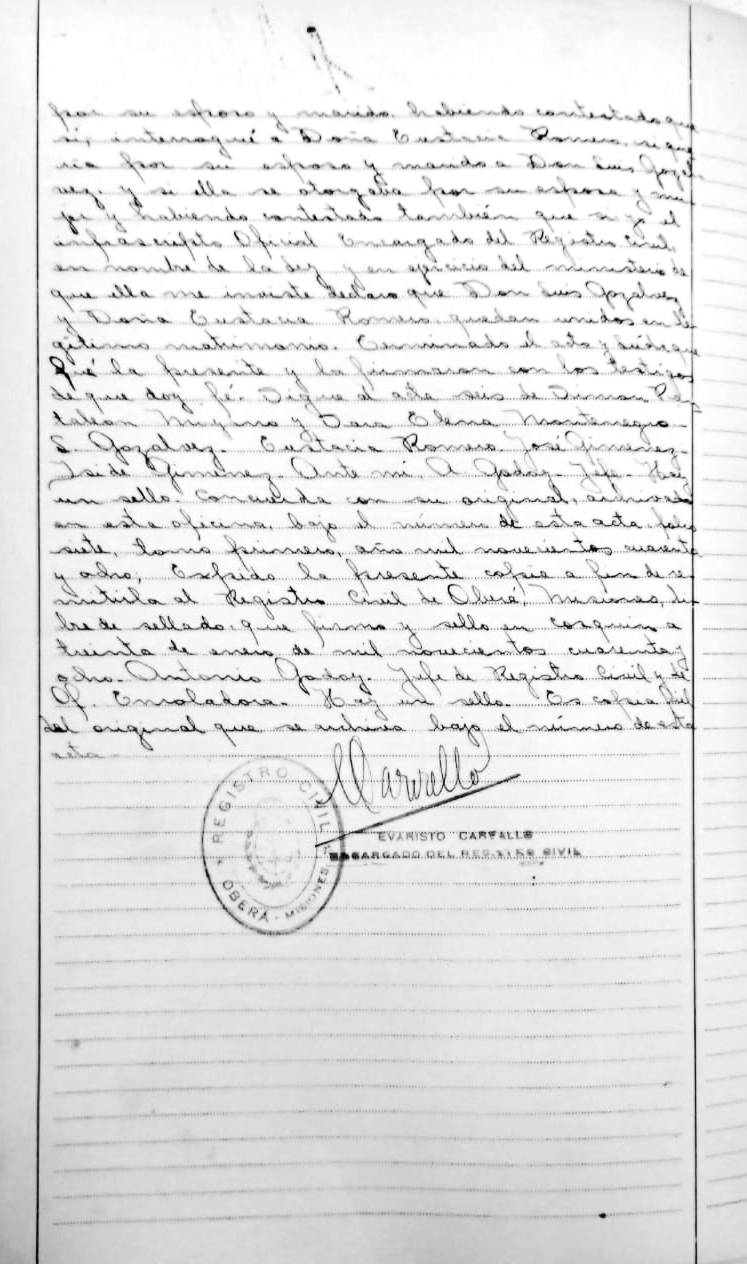 por su esposo y marido, habiendo contestado que
si, interrogué a Doña Eustacia Romero, si que
ria por su esposo y marido a Don Luis Gozal-
vez, y si ella se otorgaba por su esposa y mu-
jer y habiendo contestado también que si yo el
infrascripto Oficial Encargado del Registro Civil,
en nombre de la Ley y en ejercicio del ministerio de
que ella me inviste declaro que Don Luis Gozalvez
y Doña Eustacia Romero, quedan unidos en le-
gítimo matrimonio. Terminado el acto y
la presente y la firmaron con los testigos
de que doy fé. Sigue el acta seis de Simon Pan-
taleon Moyano y Sara Elena Montenegro
L. Gozalvez. Eustacia Romero. José Gimenez.
Gimenez. Ante mi, A Godoy. Jefe. Hay
un sello. Concuerda con su original, archivado
en esta oficina, bajo el número de esta acta, folio
siete, tomo primero, año mil novecientos cuarenta
y ocho; Expido la presente copia a fin de re-
mitirla al Registro Civil de Oberá, Misiones, li-
bre de sellado, que firmo y sello en Cosquin a
treinta de enero de mil novecientos cuarenta y
ocho. Antonio Godoy. Jefe de Registro Civil y de
Of. Enroladora. Hay un sello. Es copia fiel
del original que se archiva bajo el número de esta
acta.
Carvallo
REGISTRO CIVIL
OBERÁ - MISIONES
EVARISTO CARVALLO
ENCARGADO DEL REGISTRO CIVIL